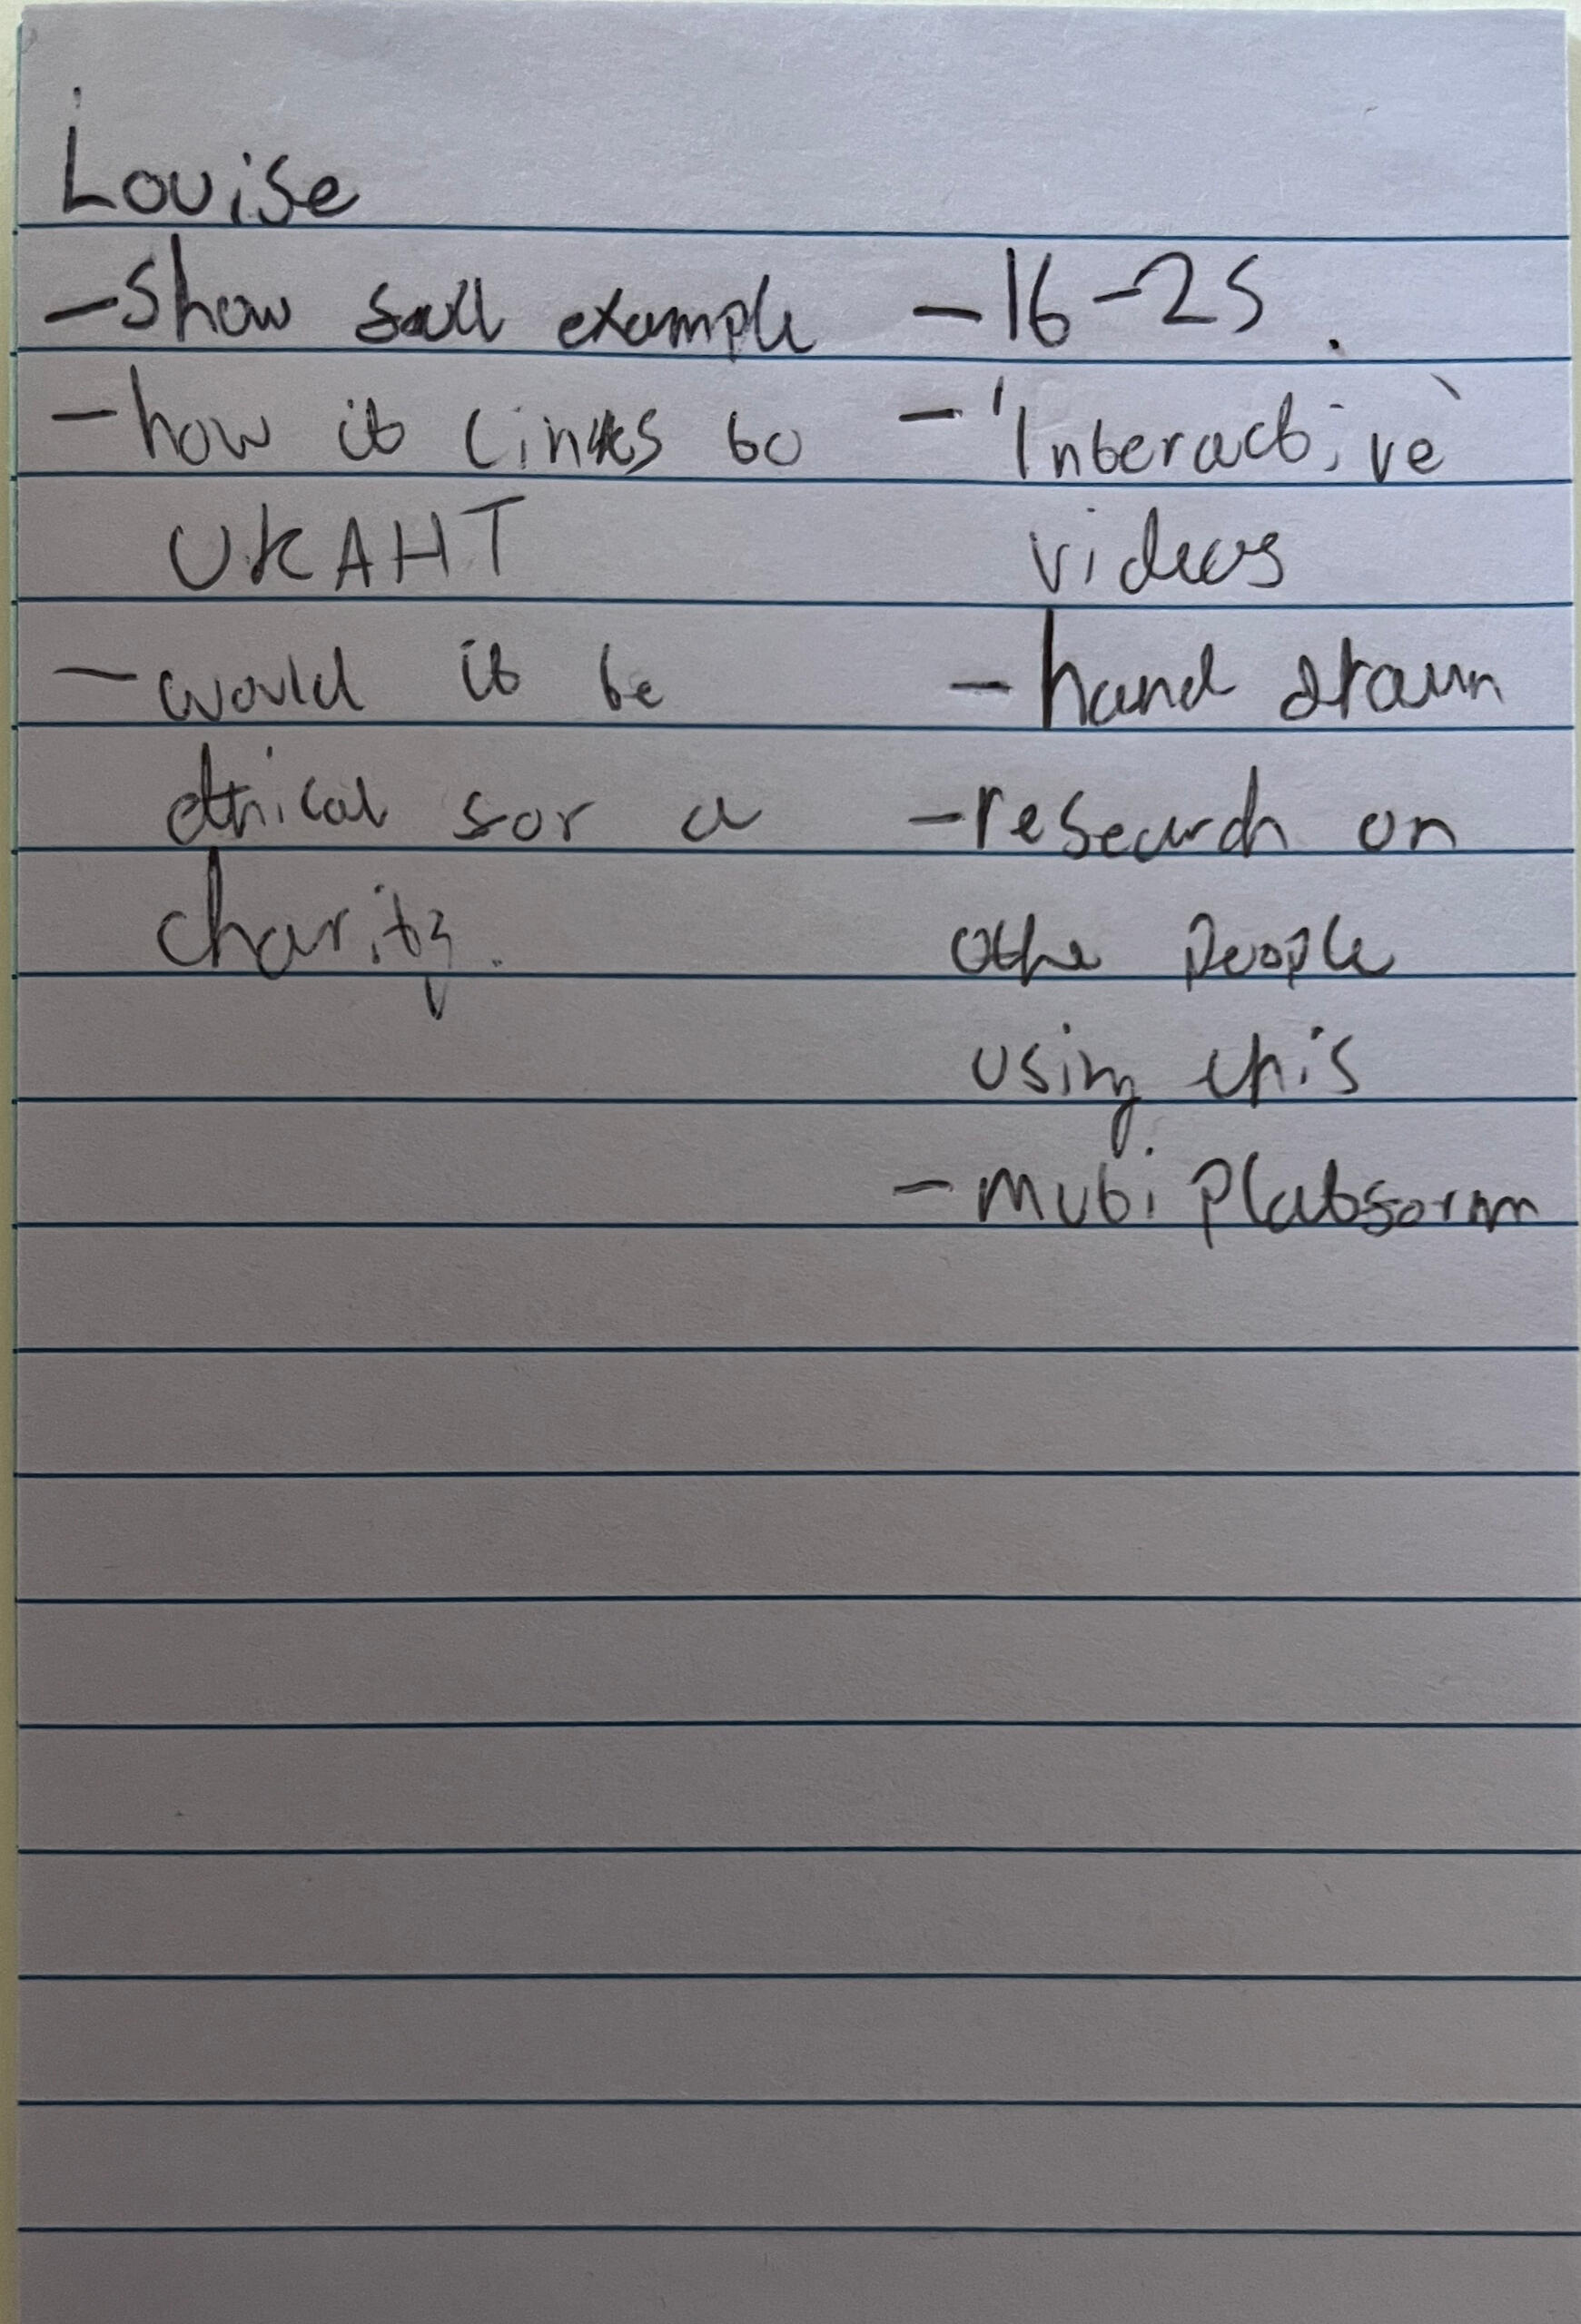 Louise
- Show full example
- how it links to
UKAHT
- would it be
ethical for a
charity.
- 16-25.
- 'Interactive'
videos
- hand drawn
- research on
othe people
using this
- Muti Platform